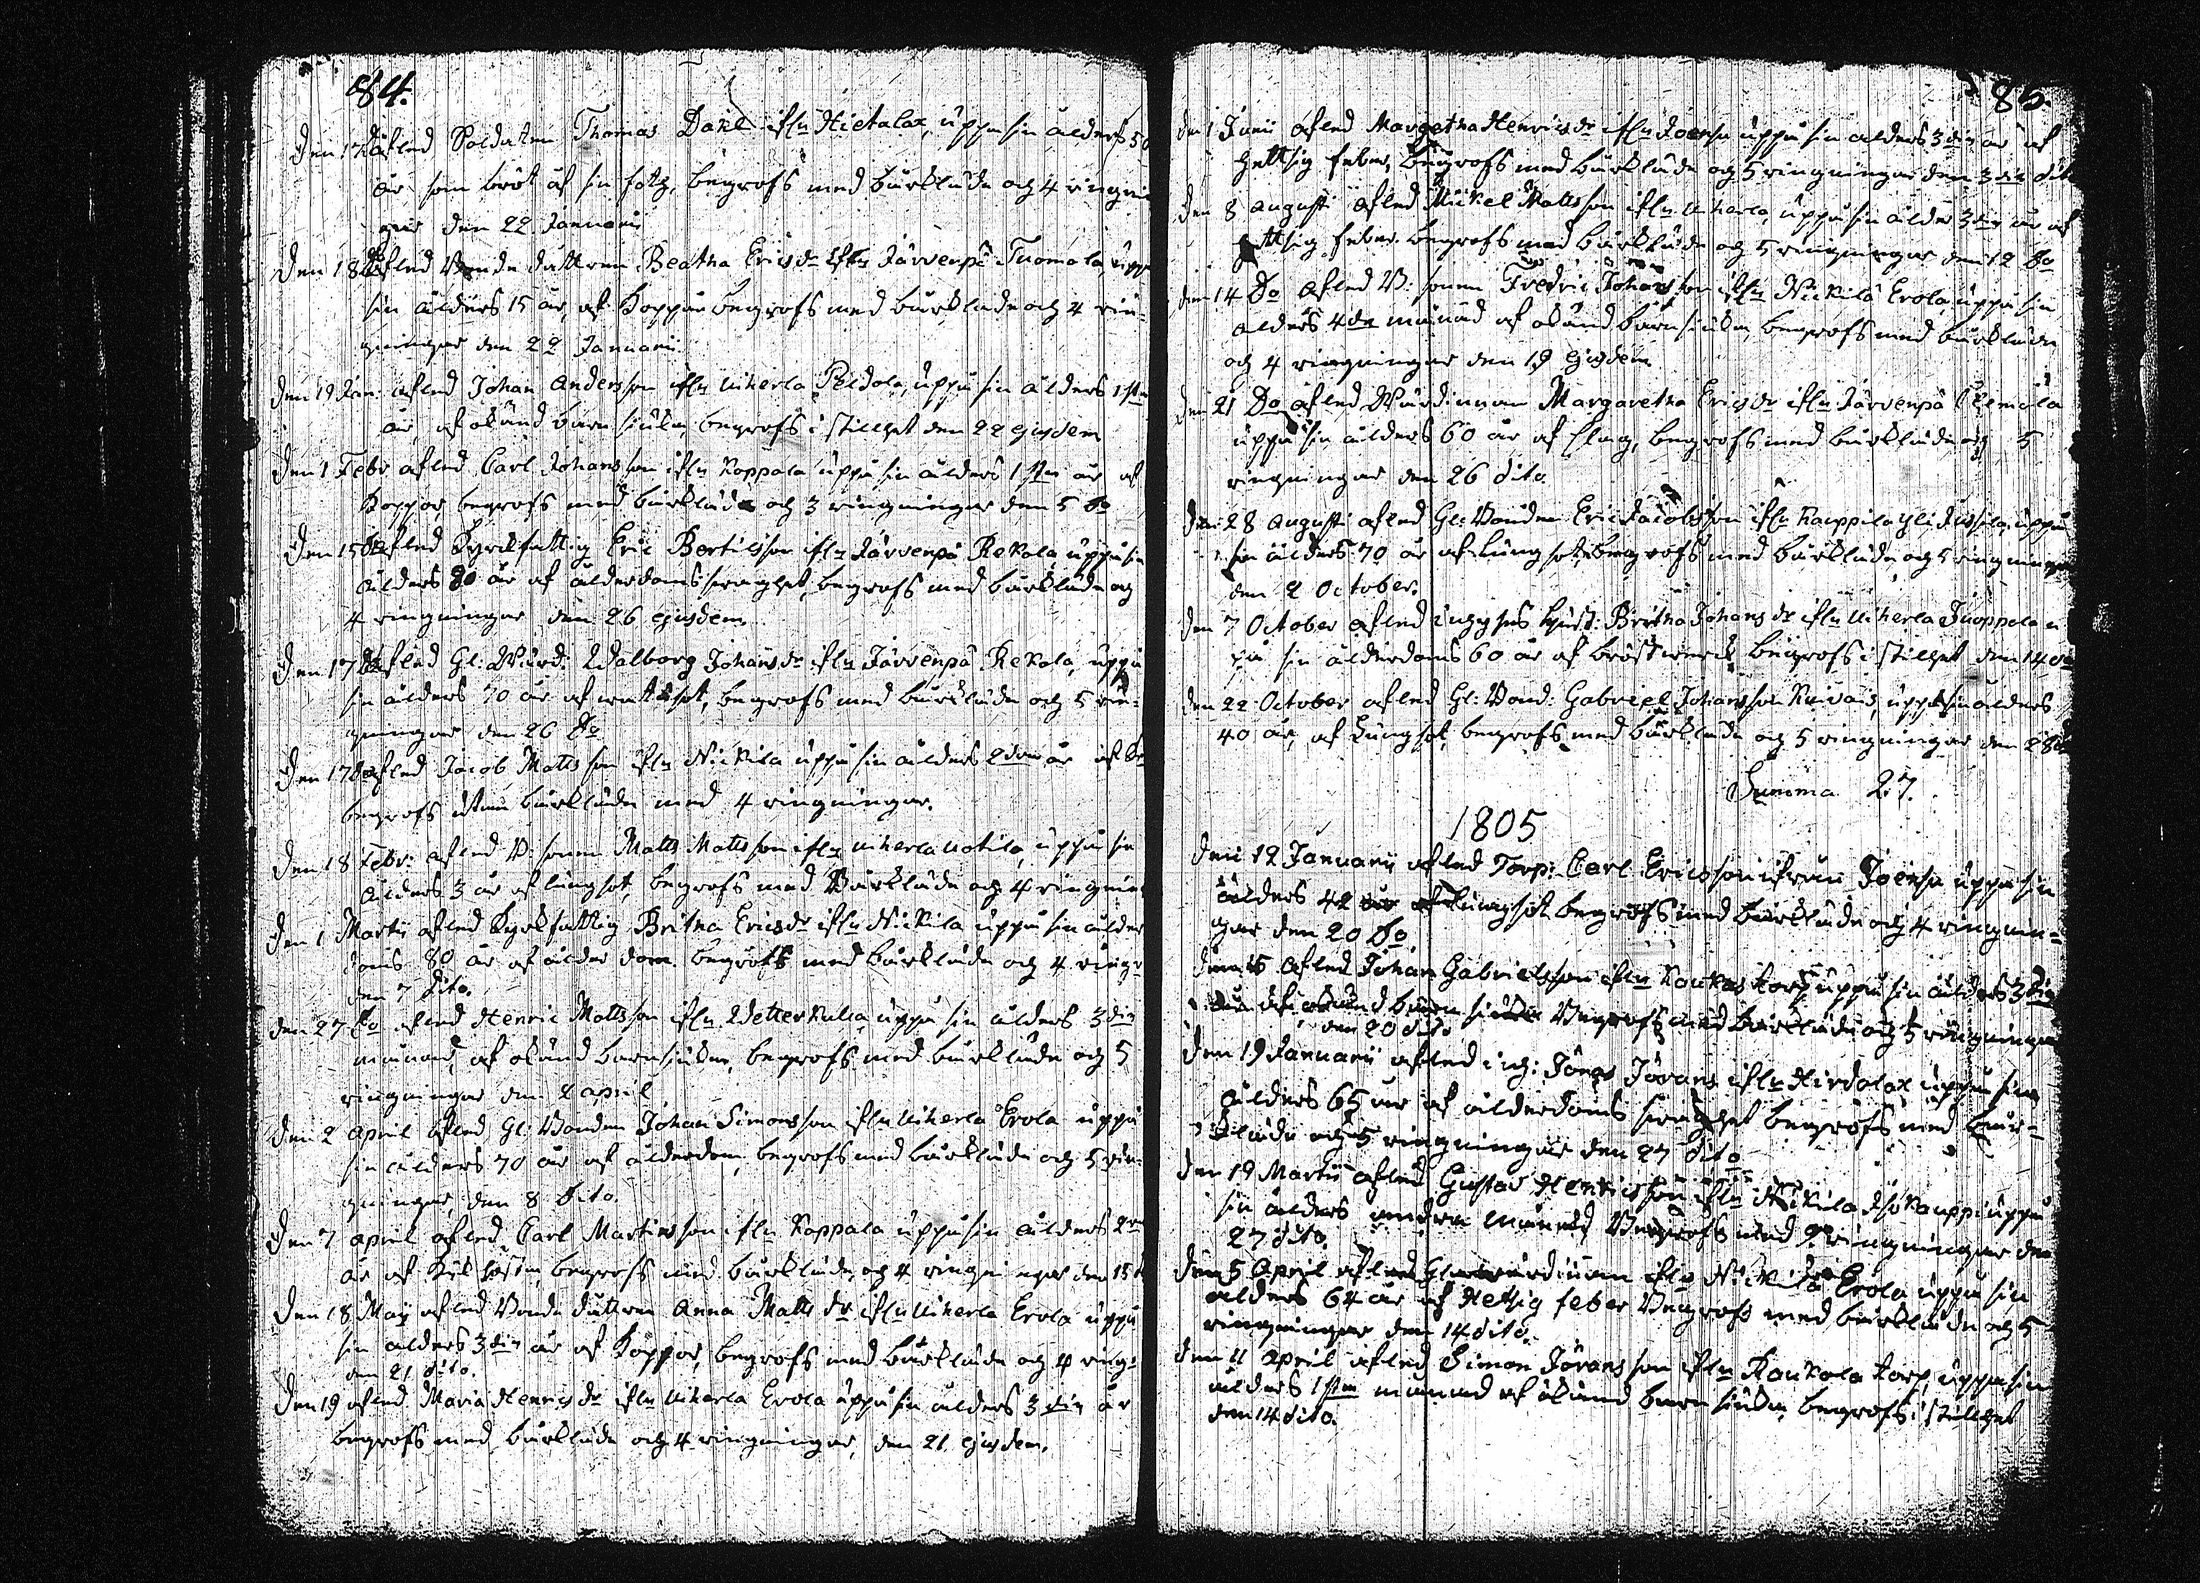 84.
Den 17 Do afled Soldaten Thomas Dahl ifrn Hietalax, uppå sin ålders 50
år som bröt af sin fot, begrofs med bårkläde och 4 ringnin
gar den 22 Januari
Den 18 Do afled Bonde dottren Beatha Ericsdr ifrn Järvenpä Tuomala, uppå
sin ålders 15 år, af Koppor begrofs med bårkläde och 4 rin-
gningar den 22 Januarii
Den 19 Jan: afled Johan Andersson ifrn Uiherla Peldola, uppå sin ålders 1sta
år, af okänd barn siukm, begrofs i stillhet den 22 ejusdem
Den 1 Febr afled Carl Johansson ifrn Koppala uppå sin ålders 1sta år af
Koppor, begrofs med bårkläde och 3 ringningar den 5 Do
Den 15 Do afled Kyrckfattig Eric Bertilsson ifrn Järvenpä Rekola, uppå sin
ålders 80 år af ålderdoms svaghet, begrofs med bårkläde och
4 ringningar den 26 ejusdem
Den 17 Do afled Gl: Wärd: Walborg Johansdr ifrn Järvenpä Rekola, uppå
sin ålders 70 år af wattusot, begrofs med bårkläde och 5 rin-
gningar den 26 Do
Den 17 Do afled Jacob Mattsson ifrn Nickila uppå sin ålders 2dra år af Do
begrofs utan bårkläde med 4 ringningar.
Den 18 Febr: afled B: sonen Matts Mattsson ifrn Uiherla Uotila, uppå sin
ålders 3 år af lungsot, begrofs med Bårkläde och 4 ringnin
Den 1 Martii afled Kyrkfattig Britha Ericsdr ifrn Nickila uppå sin ålder
doms 80 år af ålderdom. begrofs med bårkläde och 4 ringn
den 7 dito.
den 27 Do afled Henric Mattsson ifrn Wetterkulla, uppå sin ålders 3dia
månad, af okänd barnsiukm, begrofs med bårkläde och 5
ringningar den 2 april
Den 2 April afled Gl: Bonden Johan Simonsson ifrn Uiherla Erola uppå
sin ålders 70 år af ålderdom, begrofs med bårkläde och 5 rin-
gningar, den 8 dito.
Den 7 april afled Carl Martinsson ifrn Koppala uppå sin ålders 2ra
år af Kikhosta, begrofs med bårkläde, och 4 ringningar den 15
Den 18 Maij afled Bonde dottren Anna Mattsdr ifrn Uiherla Erola uppå
sin ålders 3dia år af Koppor, begrofs med bårkläde och 4 ring:
den 21 dito.
Den 19 afled Maria Henricsdr ifrn Uiherla Erola uppå sin ålders 3dia år
begrofs med bårkläde och 4 ringningar, den 21 ejusdem.
85.
den 1 Junii afled Margetha Henricsdr ifrn Joensu uppå sin ålders 3dia år af
hettsig feber, begrofs med bårkläde och 5 ringningar den 3dia dito
Den 8 augusti afled Mickel Mattsson ifrn Uiherla, uppå sin ålders 3dia år af
hettsig feber. begrofs med bårkläde och 5 ringningar den 12 Do
den 14 Do afled B: sonen Fredric Johansson ifrn Nickilä Erola, uppå sin
ålders 4de månad af okänd barnsiukm, begrofs med bårkläde
och 4 ringningar den 19 ejusdem
den 21 Do afled Wärdinnan Margaretha Ericsdr ifrn Järvenpä
uppå sin ålders 60 år af slag, begrofs med bårkläde och 5
ringningar den 26 dito.
den 28 augusti afled Gl: Bonden Eric Jacobsson ifrn uppå
sin ålders 70 år af lungsot, begrofs med bårkläde och 5 ringningar
den 2 October.
den 7 October afled Britha Johansdr ifrn Uiherla Juoppala u
på sin ålderdoms 60 år af bröstwerck begrofs i stillhet den 14 Do
den 22 October afled Gl: Bond: Gabriel Johansson uppå sin ålders
40 år, af Lungsot, begrofs med bårkläde och 5 ringningar den 28
Summa 27.
1805
den 12 Januarii afled Torp: Carl Ericsson ifrån Joensu uppå sin
ålders 42 år af Lungsot begrofs med bårkläde och 4 ringnin-
gar den 20 Do
den 15 afled Johan Gabrielsson ifrn Koukas torp uppå sin ålders 3dia
år af okänd barn siukm Begrofs med bårkläde och 5 ringningar
den 20 dito
den 19 Januarii afled Jöran ifrn Hirdolax uppå sin
ålders 65 år af ålderdoms svaghet begrofs med bår-
kläde och 5 ringningar den 27 dito
den 19 Martii afled Gustav Henricsson ifrn Nikila uppå
sin ålders andra månad Begrofs med 2 ringningar den
27 dito.
den 5 April afled Gl: wärdinnan ifrn Nickila Erola uppå sin
ålders 64 år af Hettsig feber Begrofs med bårkläde och 5
ringningar den 14 dito.
den 11 April afled Simon Jöransson ifrn Koukola torp, uppå sin
ålders 1sta månad af okänd barnsiukm, begrofs i stillhet
den 14 dito.